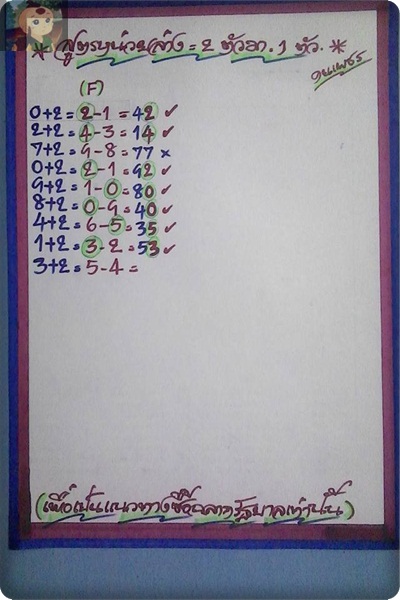 * สูตรหน่วยล่าง = 2 ตัวลา. 1 ตัว. *
(F)
0+2 = 2-1 = 42 ✓
2+2 = 4-3 = 14 ✓
7+2 = 9-8 = 77 ×
0+2 = 2-1 = 92 ✓
9+2 = 1-0 = 80 ✓
8+2 = 0-9 = 40 ✓
4+2 = 6-5 = 35 ✓
1+2 = 3-2 = 53 ✓
3+2 = 5-4 =
(เพื่อเป็นแนวทางซื้อสลากรัฐบาลเท่านั้น)